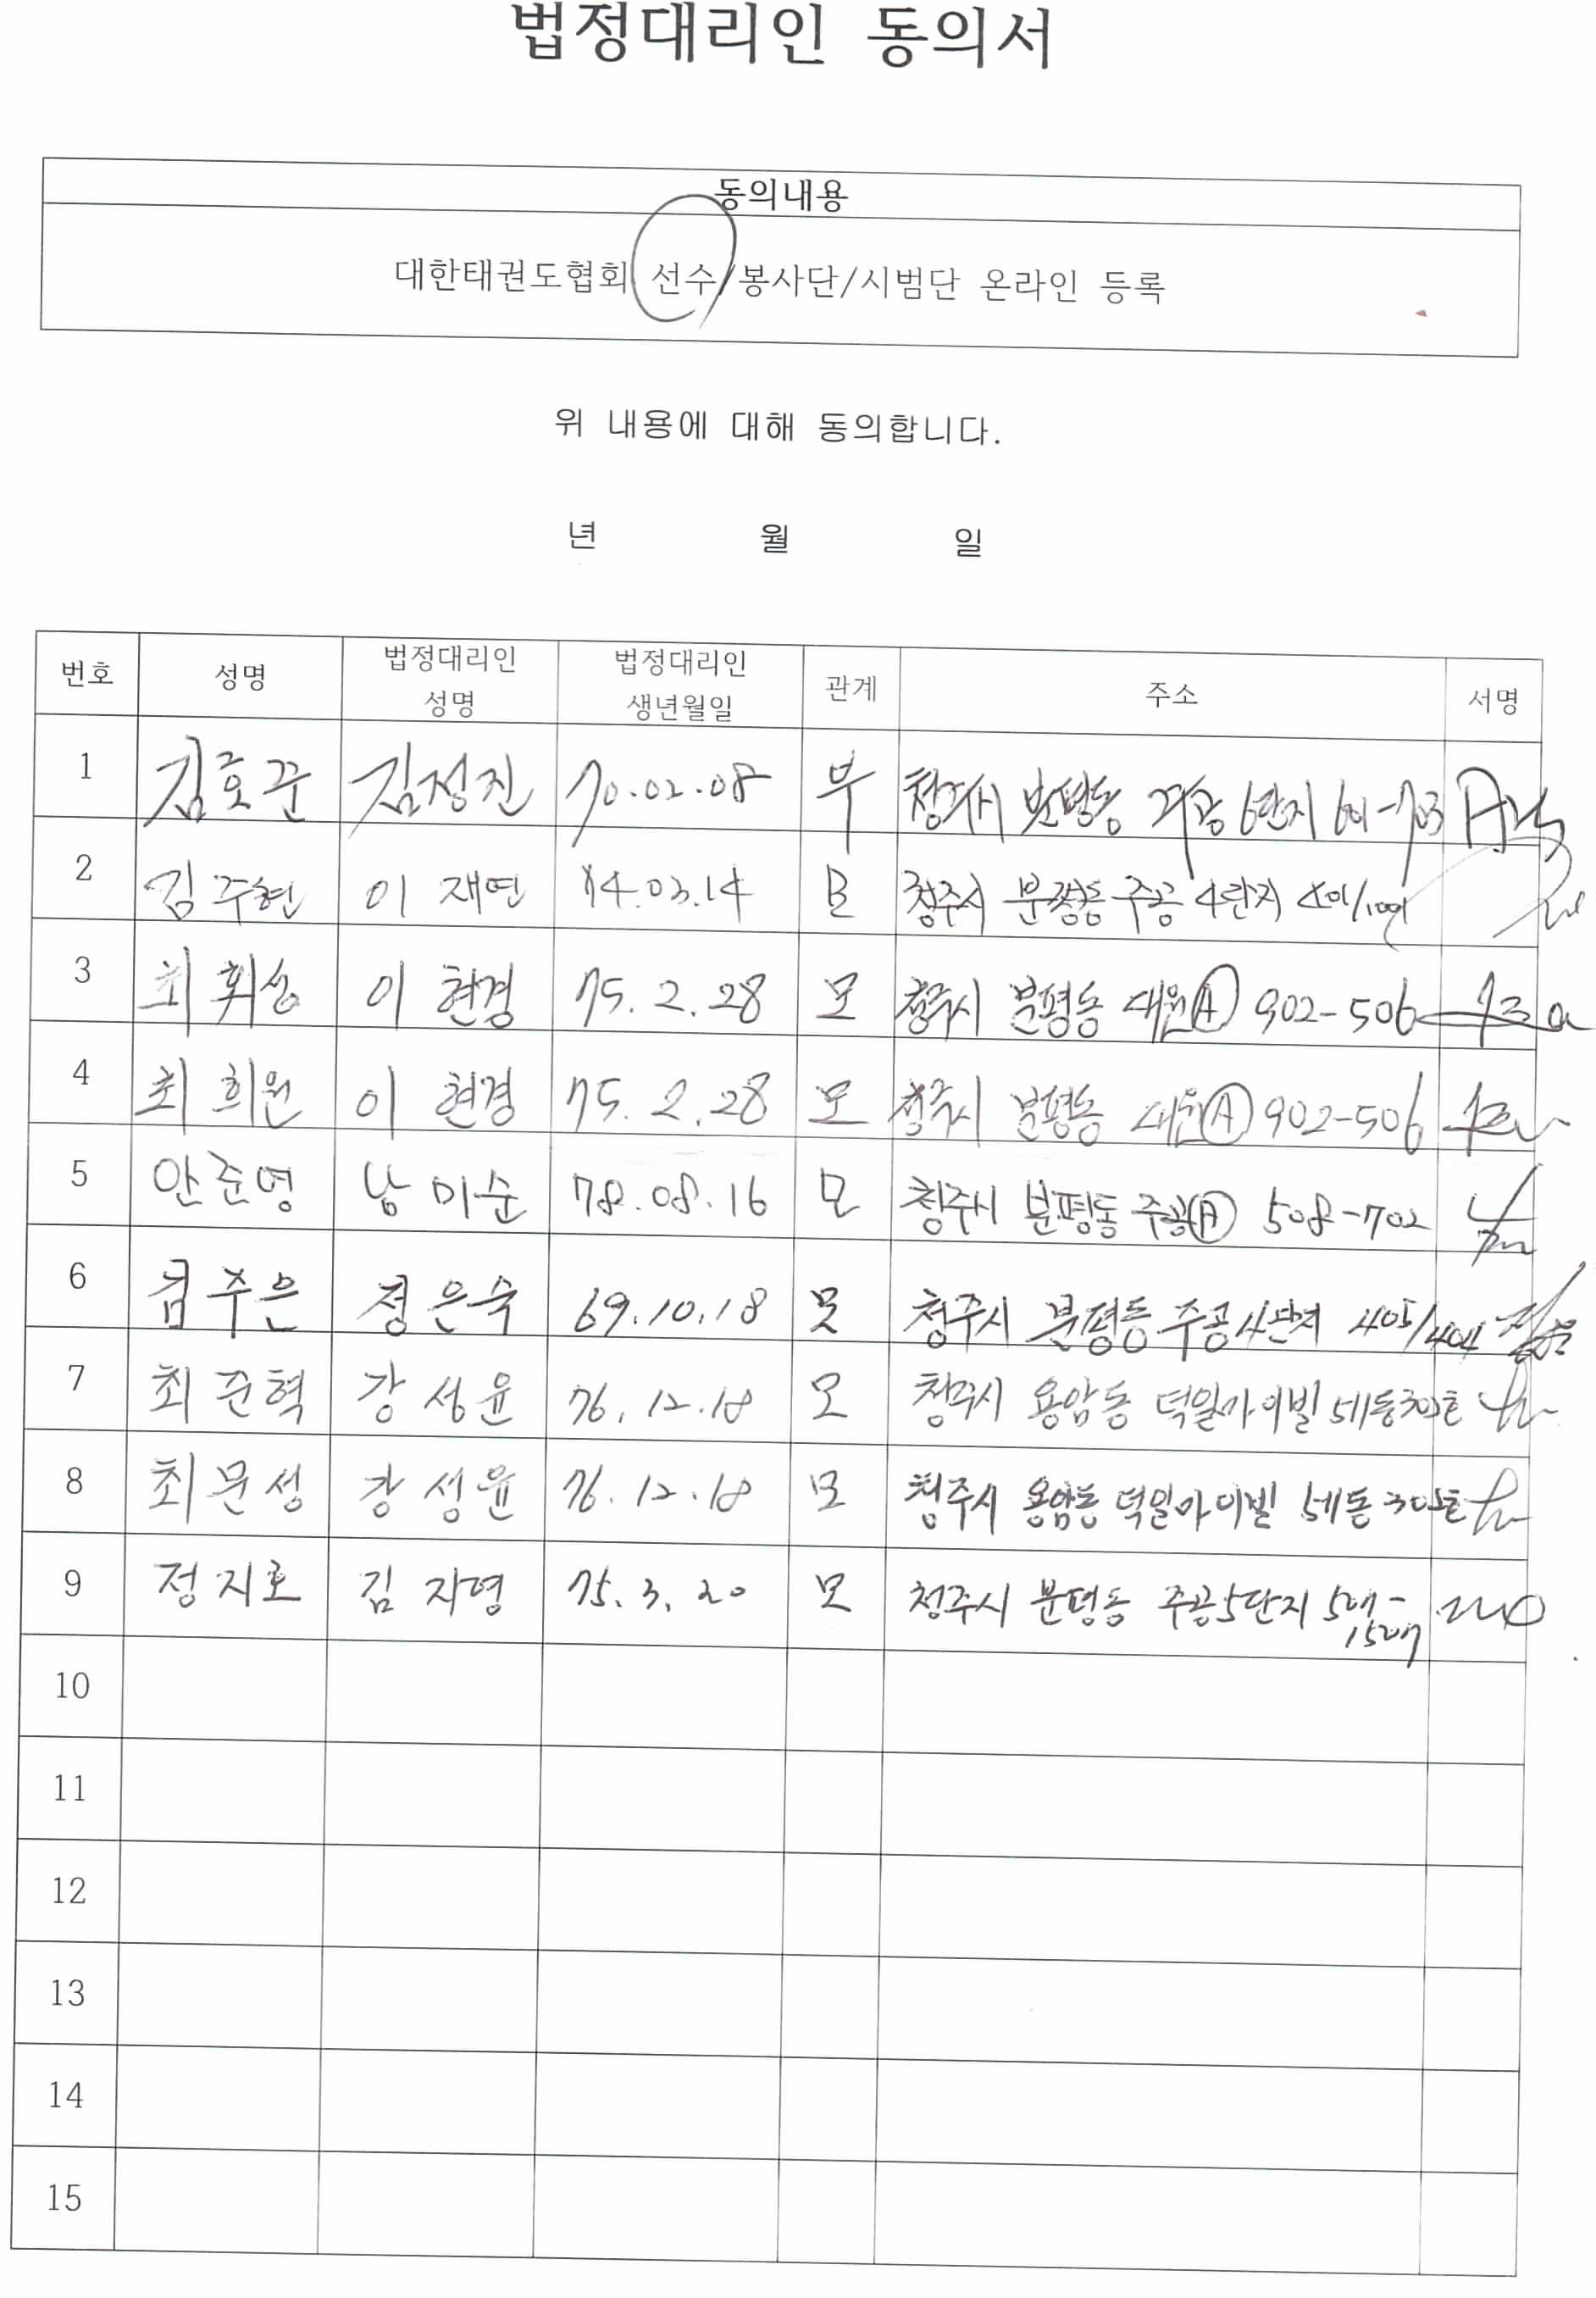 법정대리인 동의서
동의내용
대한태권도협회 선수/봉사단/시범단 온라인 등록
위 내용에 대해 동의합니다.
년 월 일
번호 성명 법정대리인 성명 법정대리인 생년월일 관계 주소 서명
1 김정진 70.02.08 부 청주시 분평동 주공 6단지 601-703
2 김주현 이재연 74.03.14 모 청주시 분평동 주공 4단지
3 최휘성 이현경 75.2.28 모 청주시 분평동 대원A 902-506
4 최희원 이현경 75.2.28 모 청주시 분평동 대원A 902-506
5 안준영 남미순 78.08.16 모 청주시 분평동 주공A 508-702
6 김주은 정은숙 69.10.18 모 청주시 분평동 주공4단지 405/404
7 최준혁 강성윤 76.12.18 모 청주시 용암동 덕일마이빌
8 최문성 강성윤 76.12.18 모 청주시 용암동 덕일마이빌
9 정지호 김자영 75.3.20 모 청주시 분평동 주공5단지
10
11
12
13
14
15